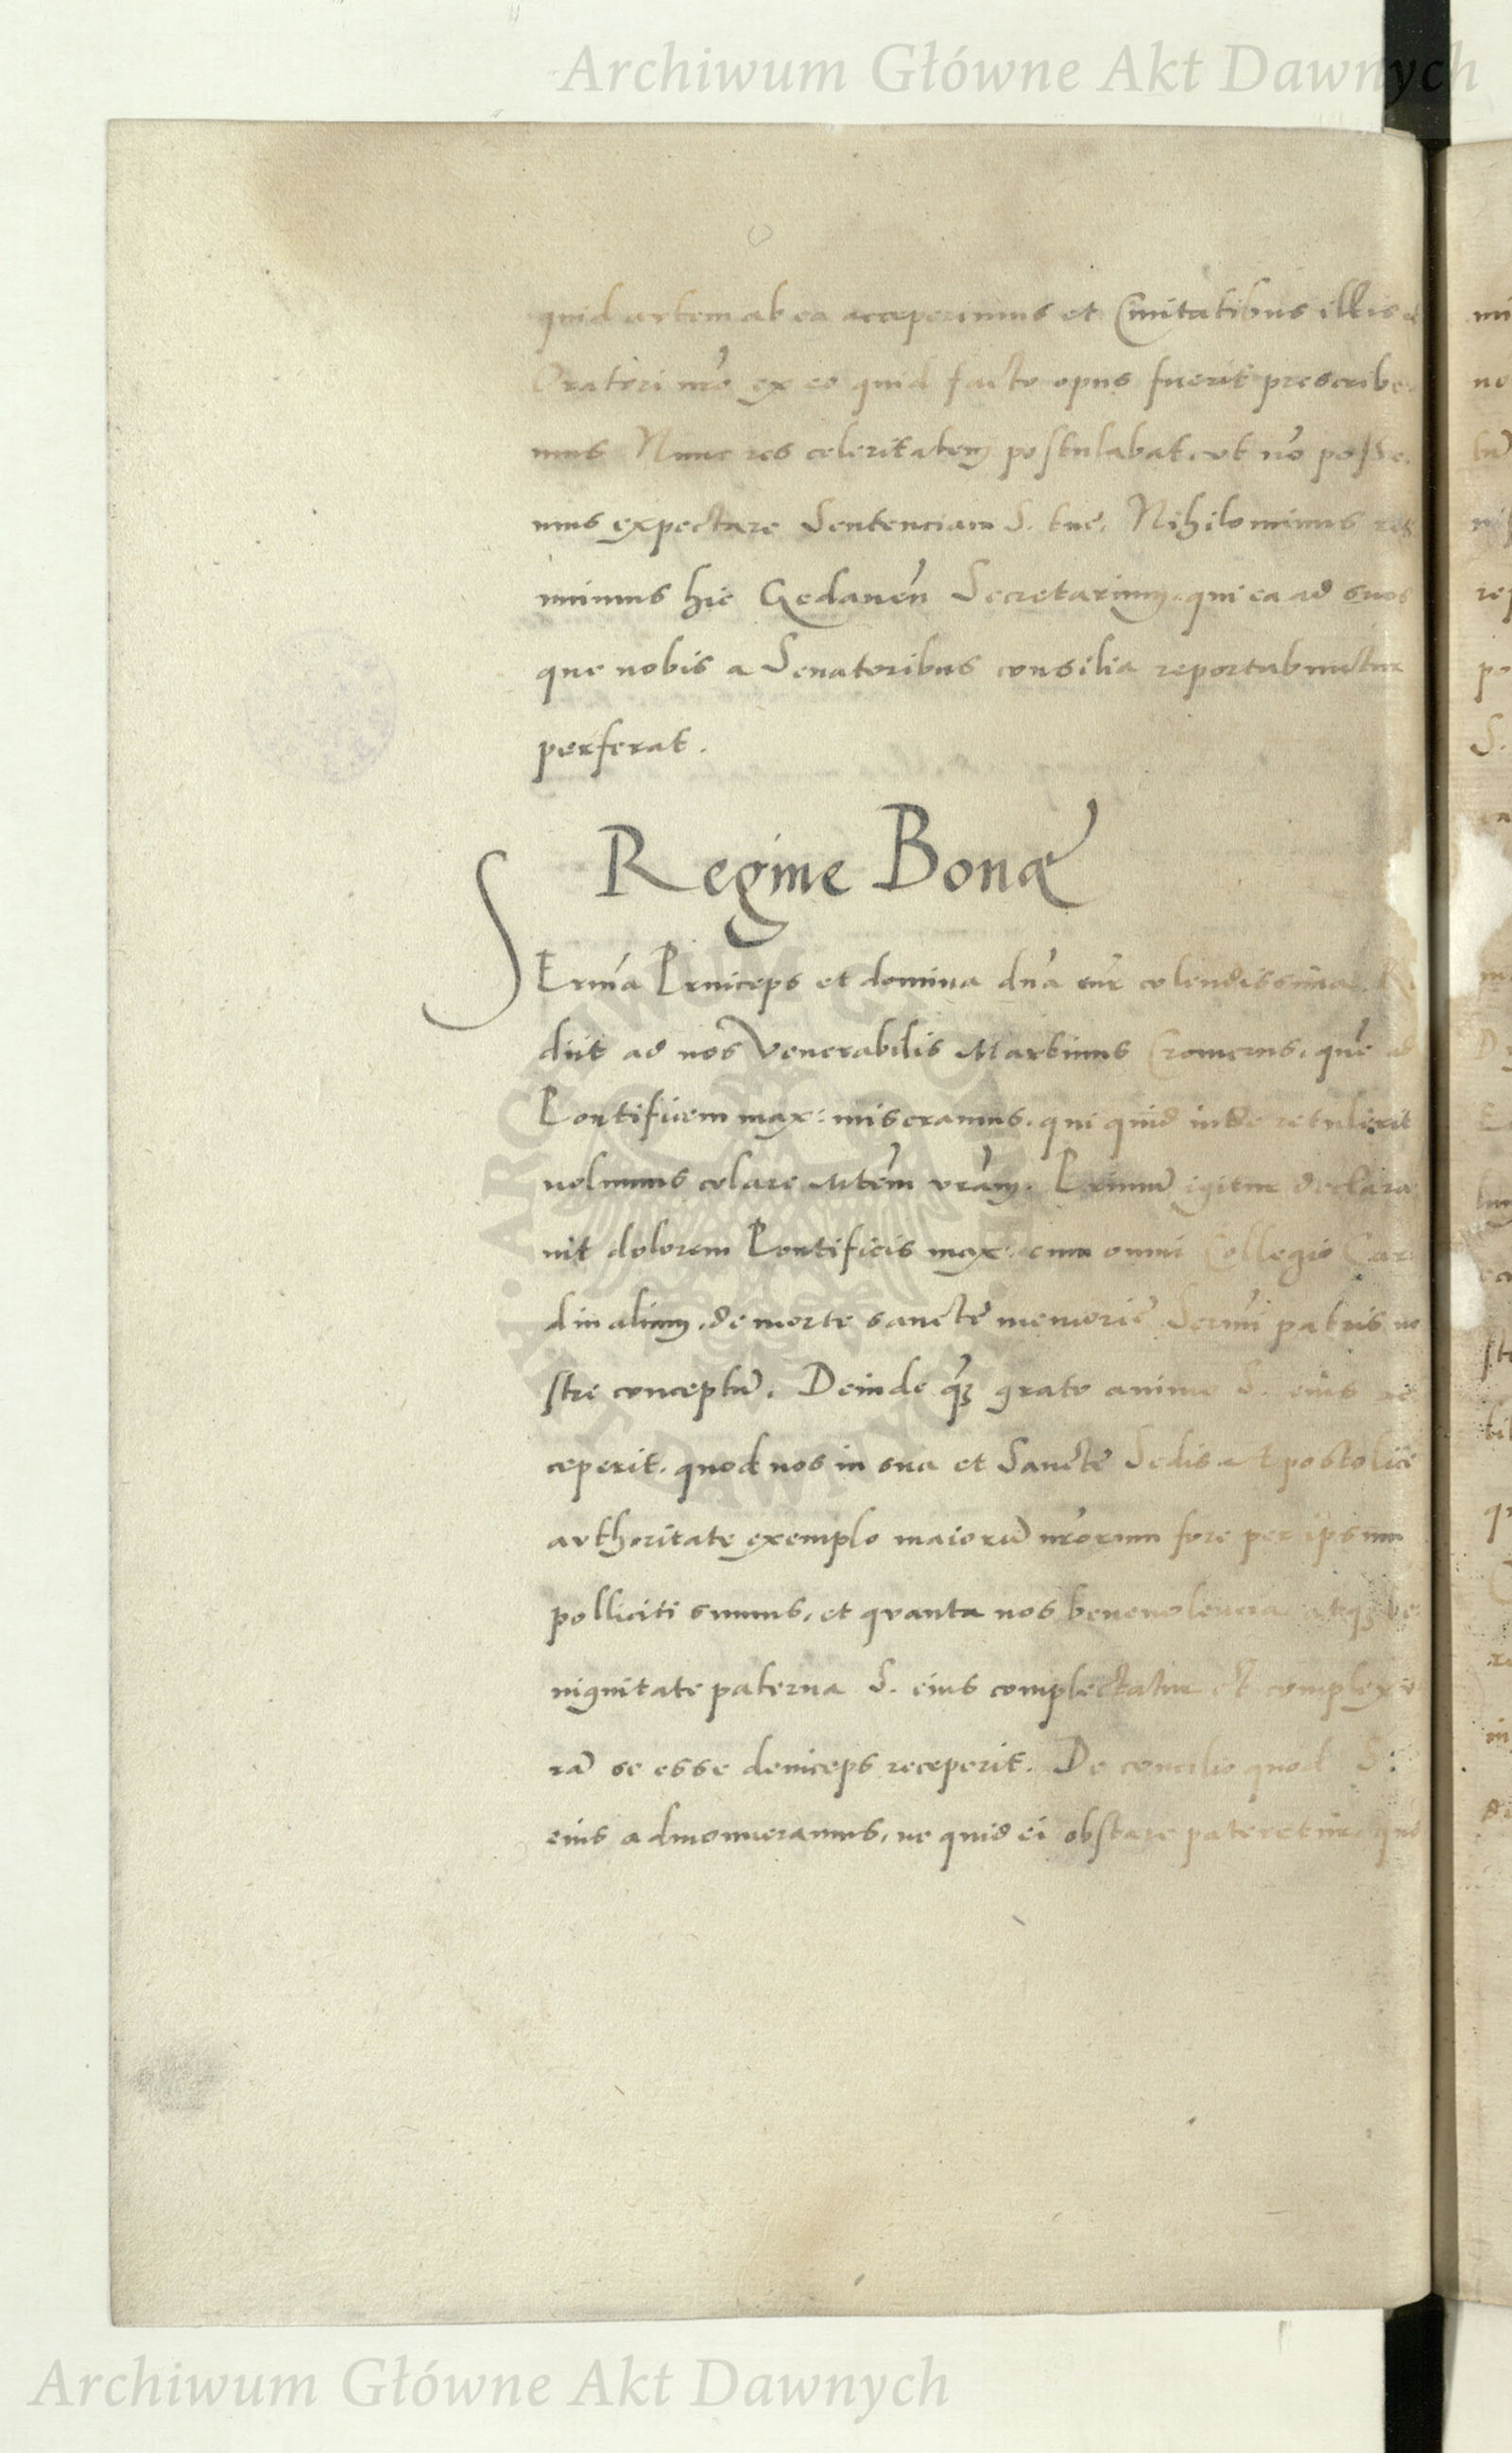 Archiwum Główne Akt Dawnych
quid autem ab ea acceperimus et Civitatibus illis et
Oratori nr̄o ex eo quid facto opus fuerit prescribe
mus Nunc res celeritatem postulabat, ut nō posse
mus expectare Sentenciam S. tuę. Nihilominus
minus hic Gedanēn Secretarium, qui ea ad suos
que nobis a Senatoribus consilia reportabuntur
perferat.
Regine Bonæ
SErm̄a Princeps et domina dn̄a nr̄a colendissima. R
diit ad nos Venerabilis Martinus Cromerus, quē ad
Pontificem max: miseramus, qui quid inde retulerit
nolumus celare Mtēm vrām. Primū igitur declara
vit dolorem Pontificis max: cum omni Collegio Car
dinalium, de morte sanctę memorię Serm̄i patris no
stri conceptū. Deinde q̄ȝ grato animo S. eius re
ceperit, quod nos in sua et Sanctę Sedis Apostolicę
authoritate exemplo maiorū nr̄orum fore per ipsum
polliciti sumus, et quanta nos benevolencia atqȝ be
nignitate paterna S. eius complectatur et complexu
rā se esse deinceps receperit. De concilio quod S.
eius admonueramus, ne quid ei obstare pateretur, quo
Archiwum Główne Akt Dawnych